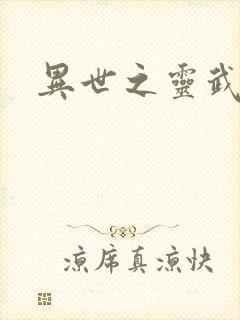 異世之靈武
涼席真涼快